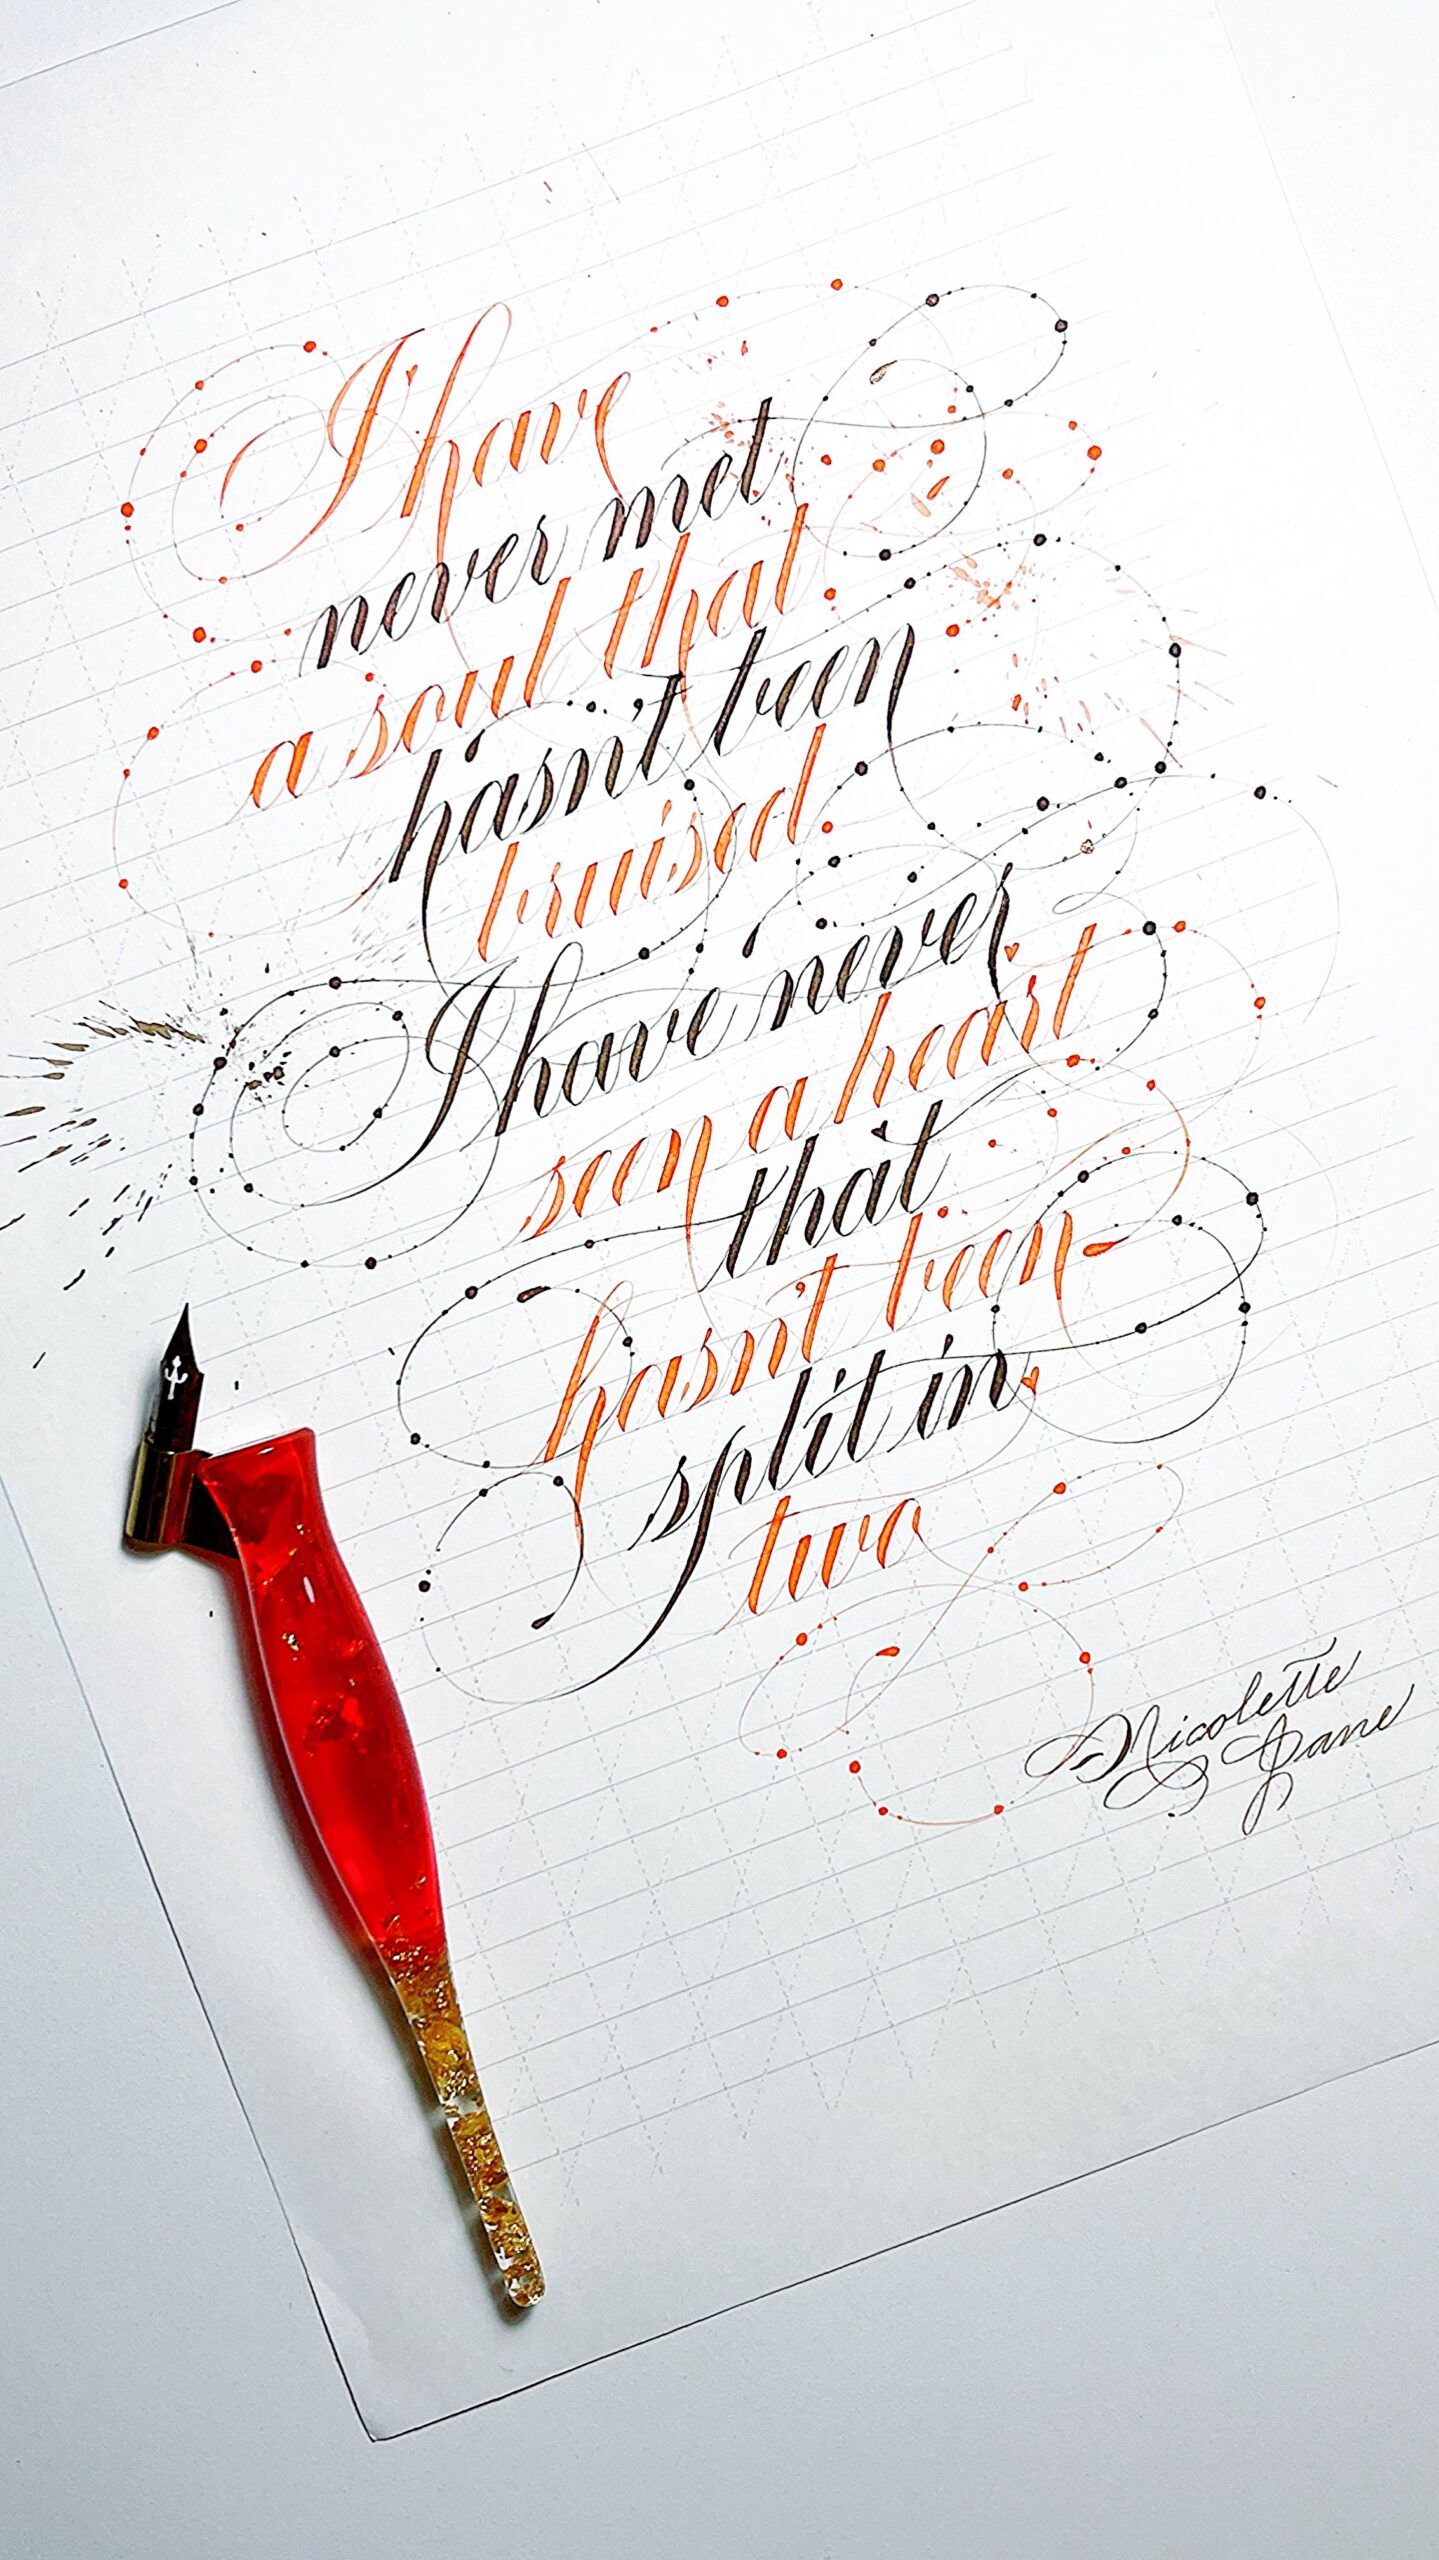 I have
never met
a soul that
hasn't been
bruised.
I have never
seen a heart
that
hasn't been
split in
two
Nicolette
Jane